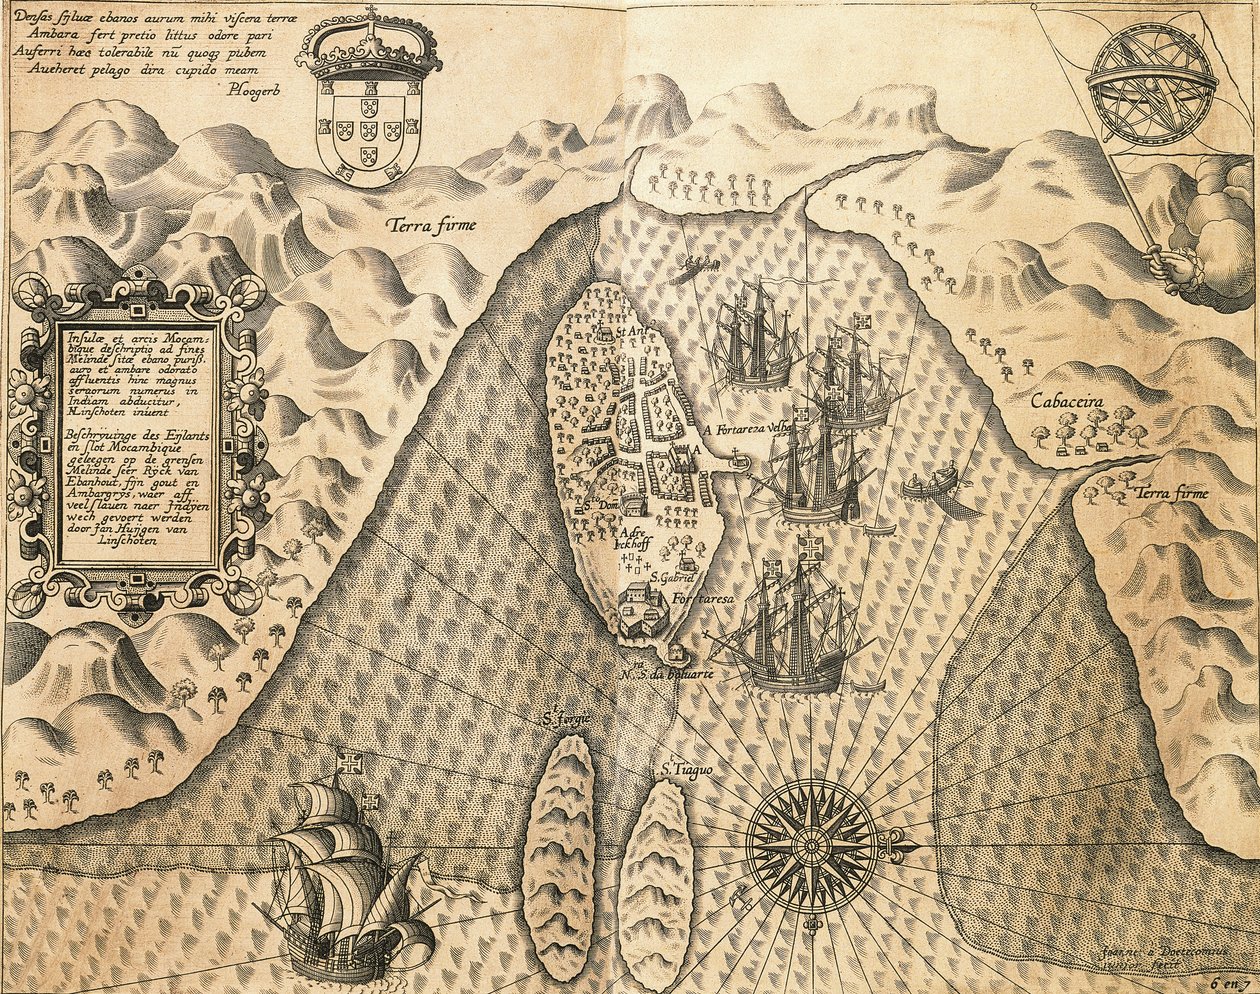 Densas sylvæ ebanos aurum mihi viscera terræ
Ambara fert pretio littus odore pari
Auferri hæc tolerabile nū quoqꝫ pubem
Aueheret pelago dira cupido meam
Hoogerb
Terra firme
Insulæ et arcis Mocam-
bique descriptio ad fines
Melinde sitæ ebano puriss.
auro et ambare odorato
affluentis hinc magnus
seruorum numerus in
Indiam abducitur,
Linschoten inuent
Beschryuinge des Eijlants
en slot Mocambique
geleegen op de grensen
Melinde seer Ryck van
Ebanhout, fijn gout en
Ambargrys, waer aff
veel slauen naer Jndyen
wech gevoert werden
door Jan Huijgen van
Linschoten
St Ant
A Fortareza Velha
A
Cabaceira
Terra firme
S. Dom
S. Gabriel
Fortaresa
N. S. da baluarte
S. Jorgie
S. Tiaguo
Doetecomius
fecit
6 en 7